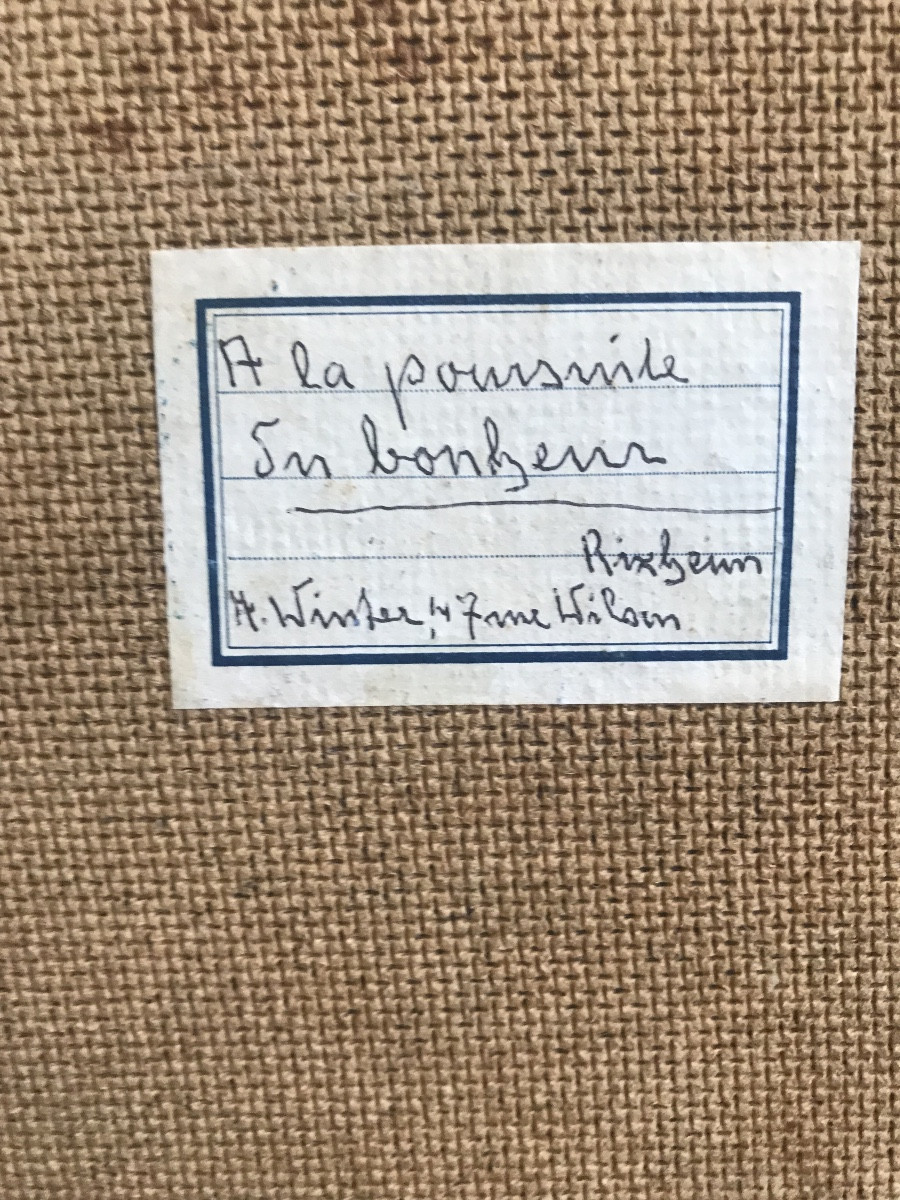 A la poursuite
du bonheur
Rixheim
A. Winter, 47 rue Wilson